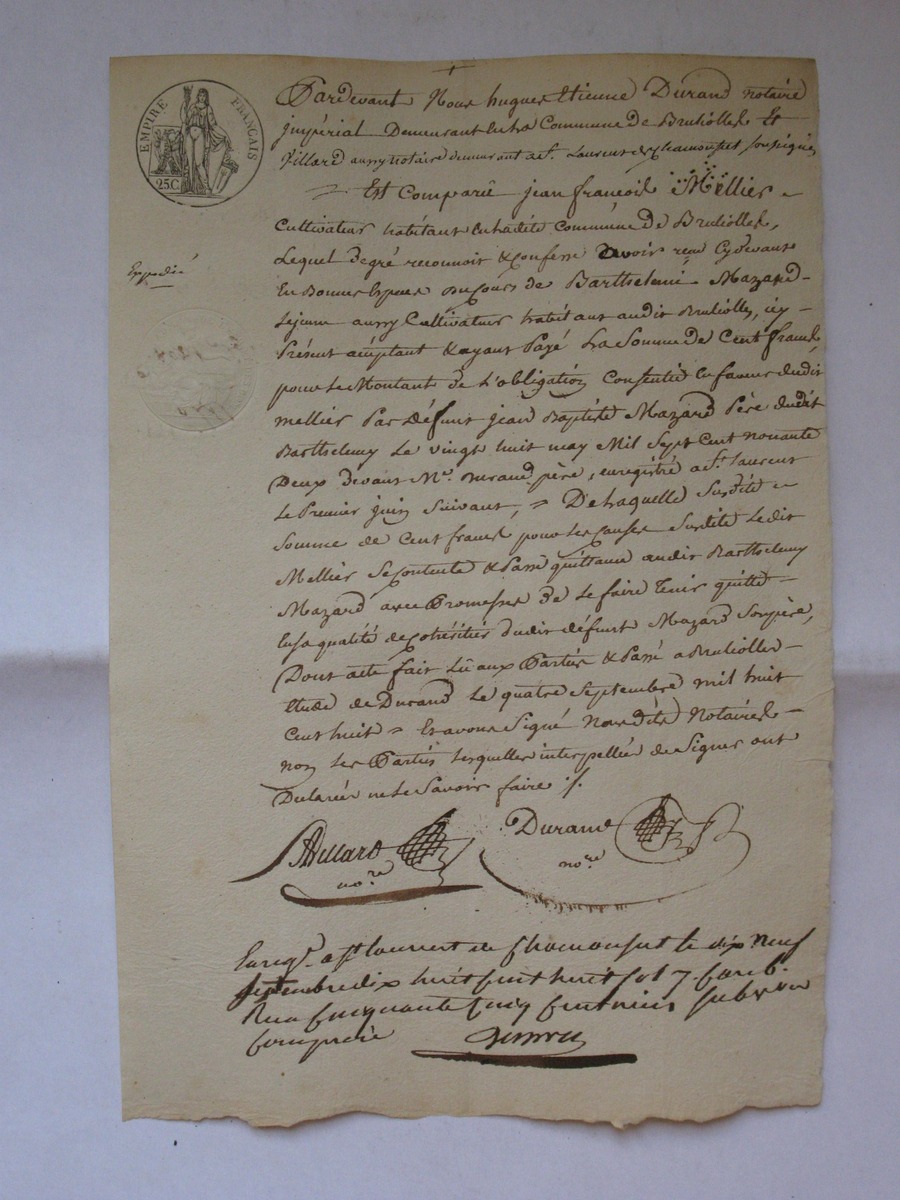 EMPIRE FRANÇAIS
25C.
Pardevant Nous hugues Etienne Durand notaire
impérial Demeurant en la Commune de Brulliolles Et
Villard aussy notaire demeurant a St. Laurent de Chamousset, soussignés
= Est Comparû jean françois Mellier -
Cultivateur habitant en ladite Commune de Brulliolles,
Lequel de gré reconnoit & Confesse avoir reçu Cydevant
En Bonnes Espèces du Cours de Barthelemi Mazard -
Lejeune aussy Cultivateur habitant audit Brulliolles, icy -
Présent acceptant & ayant Payé La Somme de Cent francs,
pour Le Montant de L'obligation Consentie en faveur dudit
mellier Par Défunt jean Baptiste Mazard Père dudit
Barthelemy Le vingt huit may Mil Sept Cent nonante
Deux devant Me. Durand père, enregistré a St. Laurent
Le Premier juin Suivant, = De Laquelle Susdite -
Somme de Cent francs pour les Causes Susdite Ledit
Mellier Se Contente & Passe quittance audit Barthelemy
Mazard avec Promesses de Le faire Tenir quitte -
En sa qualité de Cohéritier dudit défunt Mazard Son père,
Dont acte fait Lû aux Parties & Passé a Brulliolles -
Etude de Durand Le quatre Septembre mil huit
Cent huit = Et avons Signé Nousdits Notaires -
non Les Parties Lesquelles interpellées de Signer ont
Déclarées ne Le Savoir faire ./.
Expedié
Villard
no.re
Durand
no.re
Enreg. a st laurent de Chamousset le dix neuf
septembre dix huit cent huit fol 7.
Reçu cinquante cinq centimes subvon
comprise